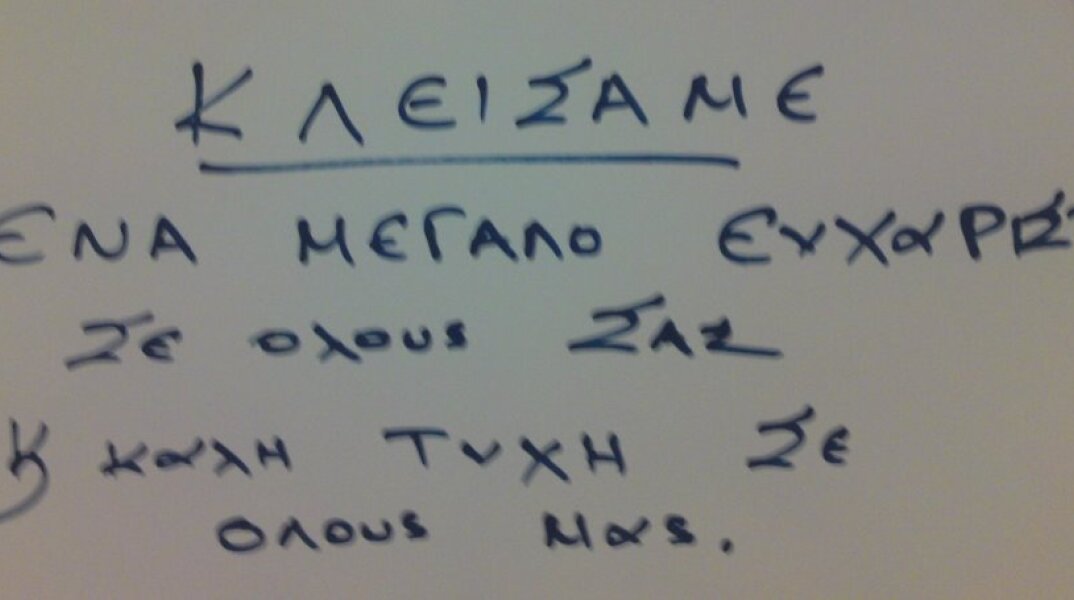 ΚΛΕΙΣΑΜΕ
ΕΝΑ ΜΕΓΑΛΟ ΕΥΧΑΡΙΣ
ΣΕ ΟΛΟΥΣ ΣΑΣ
Κ ΚΑΛΗ ΤΥΧΗ ΣΕ
ΟΛΟΥΣ ΜΑΣ.